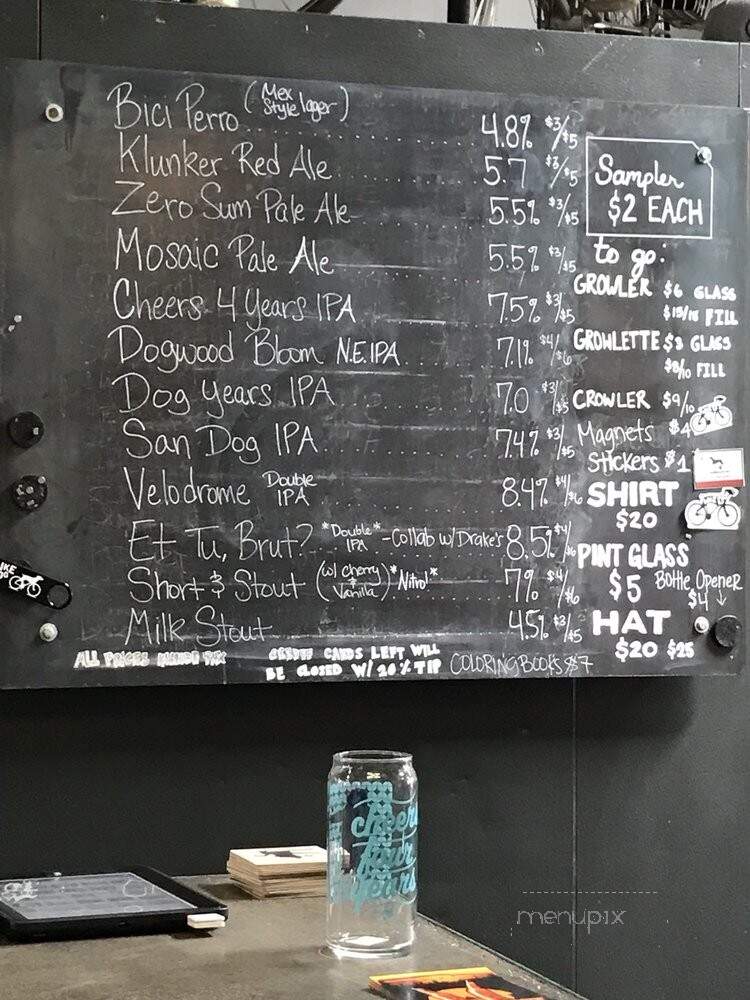 Bici Perro (Mex Style lager) 4.8% $3/$5
Klunker Red Ale 5.7 $3/$5
Zero Sum Pale Ale 5.5% $3/$5
Mosaic Pale Ale 5.5% $3/$5
Cheers 4 Years IPA 7.5% $3/$5
Dogwood Bloom N.E. IPA 7.1% $4/$6
Dog Years IPA 7.0 $3/$5
San Dog IPA 7.4% $3/$5
Velodrome Double IPA 8.4% $4/$6
Et Tu, Brut? *Double* IPA -Collab w/Drake's 8.5% $4/$6
Short & Stout (w/ Cherry & Vanilla) *Nitro!* 7% $4/$6
Milk Stout 4.5% $3/$5
ALL PRICES INCLUDE TAX
CREDIT CARDS LEFT WILL
BE CLOSED W/ 20% TIP
COLORING BOOKS $7
Sampler
$2 EACH
to go:
GROWLER $6 GLASS
$15/18 FILL
GROWLETTE $3 GLASS
$8/10 FILL
CROWLER $9/10
Magnets $4
Stickers $1
SHIRT
$20
PINT GLASS
$5 Bottle Opener
$4
HAT
$20 $25
cheers
four
years
menupix